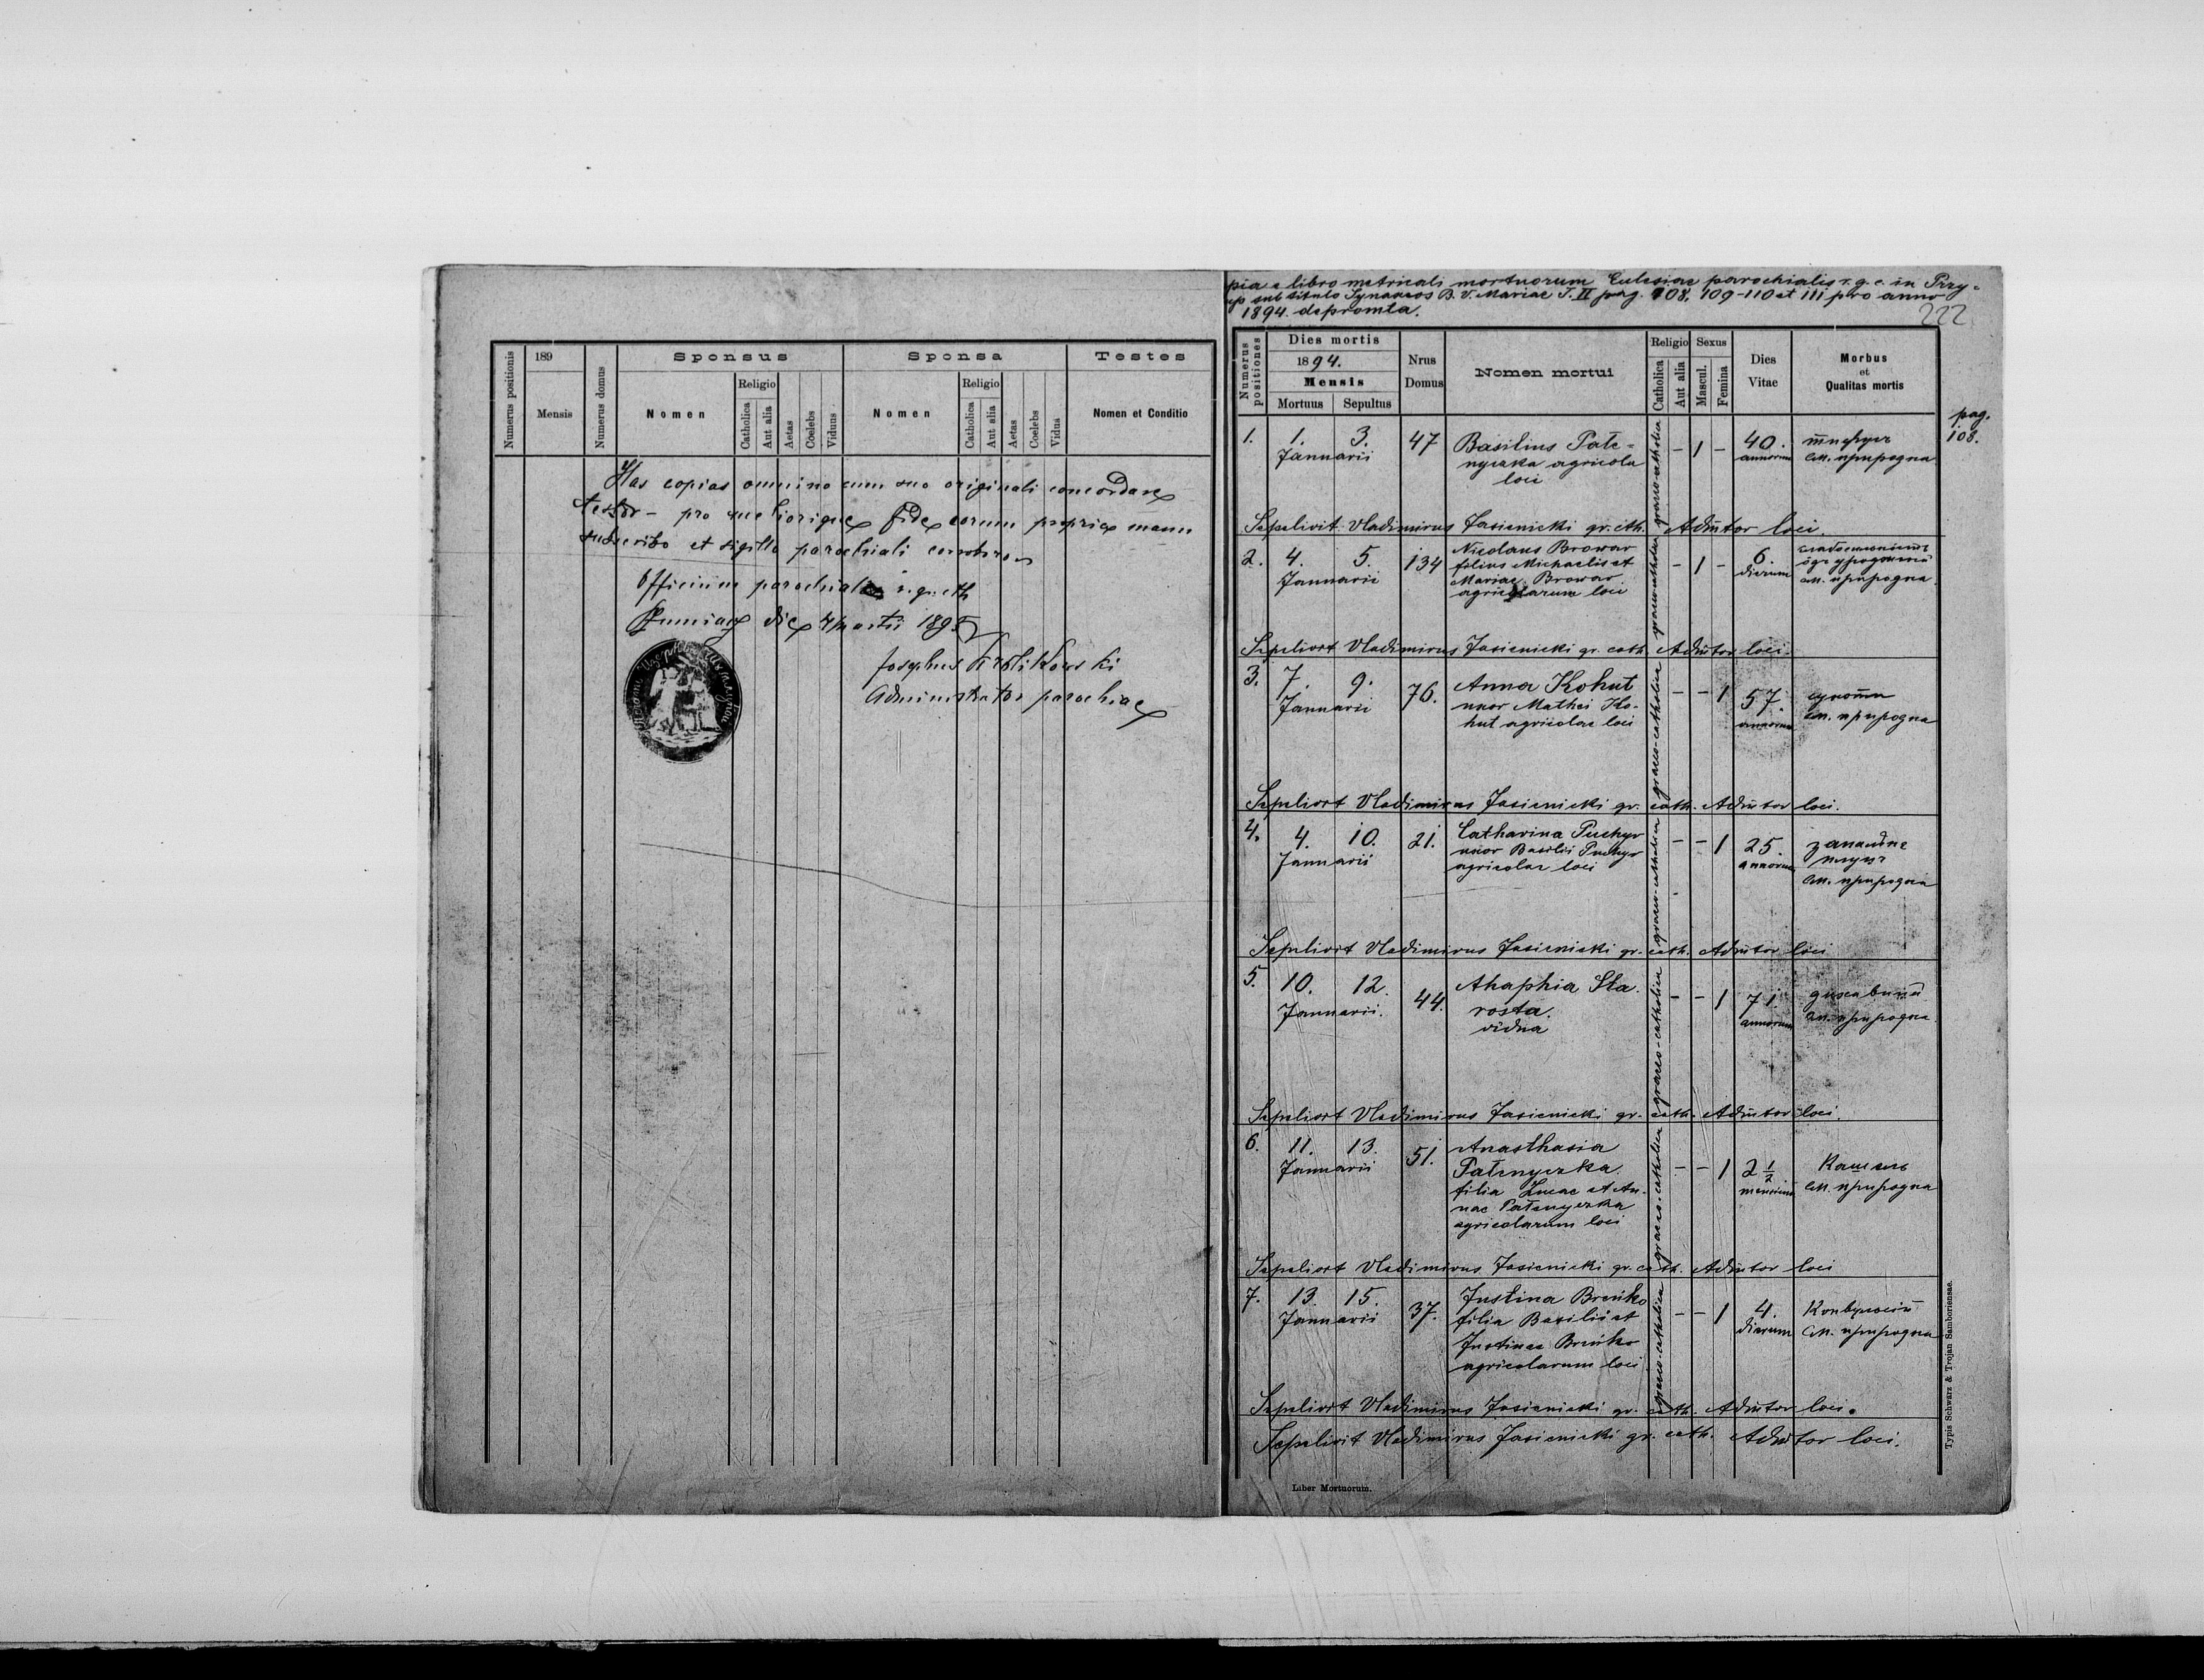 189
Numerus positionis
Mensis
Numerus domus
Sponsus
Nomen
Religio
Catholica
Aut alia
Aetas
Coelebs
Viduus
Sponsa
Nomen
Religio
Catholica
Aut alia
Aetas
Coelebs
Vidua
Testes
Nomen et Conditio
Has copias omnino cum suo originali concordare
testor - pro meliorique fide eorum propria manu
subscribo et sigillo parochiali corroboro
Officium parochiale r. gr. cth
die 4 Martii 1895
Josephus Królikowski
Administrator parochiae
pia e libro metricali mortuorum Eclesiae parochialis r. g. c. in Przy-
ep sub titulo Synaxeos B. V. Mariae T. II pag. 108, 109-110 et 111 pro anno
1894 depromta.
222
Numerus positiones
Dies mortis
1894.
Mensis
Mortuus Sepultus
Nrus Domus
Nomen mortui
Religio
Catholica
Aut alia
Sexus
Mascul.
Femina
Dies Vitae
Morbus
et
Qualitas mortis
pag.
108.
1. 1. 3. 47 Basilius Pate- - 1 - 40. тифусъ
Januarii nyczka agricola graeco-catholica annorum см. природна
loci
Sepelivit Vladimirus Jasienicki gr. cth. Adm̃tor loci.
2. 4. 5. 134 Nicolaus Browar - 1 - 6.
Januarii filius Michaelis et graeco-catholica dierum
Mariae Browar см. природна.
agricolarum loci
Sepelivit Vladimirus Jasienicki gr. cath. Adm̃tor loci.
3. 7. 9. 76. Anna Kohut - - 1 57. сухоти
Januarii uxor Mathei Ko- graeco-catholica annorum см. природна
hut agricolae loci
Sepelivit Vladimirus Jasienicki gr. cath. Adm̃tor loci.
4. 4. 10. 21. Catharina Puchyr - - 1 25.
Januarii uxor Basilii Puchyr graeco-catholica annorum
agricolae loci см. природна
Sepelivit Vladimirus Jasienicki gr. cath. Adm̃tor loci
5. 10. 12. 44. Ahaphia Sta- - - 1 71. дихавиця
Januarii. rosta. graeco-catholica annorum см. природна.
vidua
Sepelivit Vladimirus Jasienicki gr. cath. Adm̃tor loci.
6. 11. 13. 51. Anasthasia - - 1 2 1/2 Кашель
Januarii Patenyczka. graeco-catholica mensium см. природна
filia Lucae et An-
nae Patenyczka
agricolarum loci
Sepelivit Vladimirus Jasienicki gr. cath. Adm̃tor loci
7. 13. 15. 37. Justina Breńko - - 1 4. Конвульсиї
Januarii filia Basilii et graeco-catholica dierum см. природна
Justinae Breńko
agricolarum loci
Sepelivit Vladimirus Jasienicki gr. cath. Adm̃tor loci.
Sepelivit Vladimirus Jasienicki gr. cath. Adm̃tor loci.
Liber Mortuorum.
Typis Schwarz & Trojan Samboriensae.